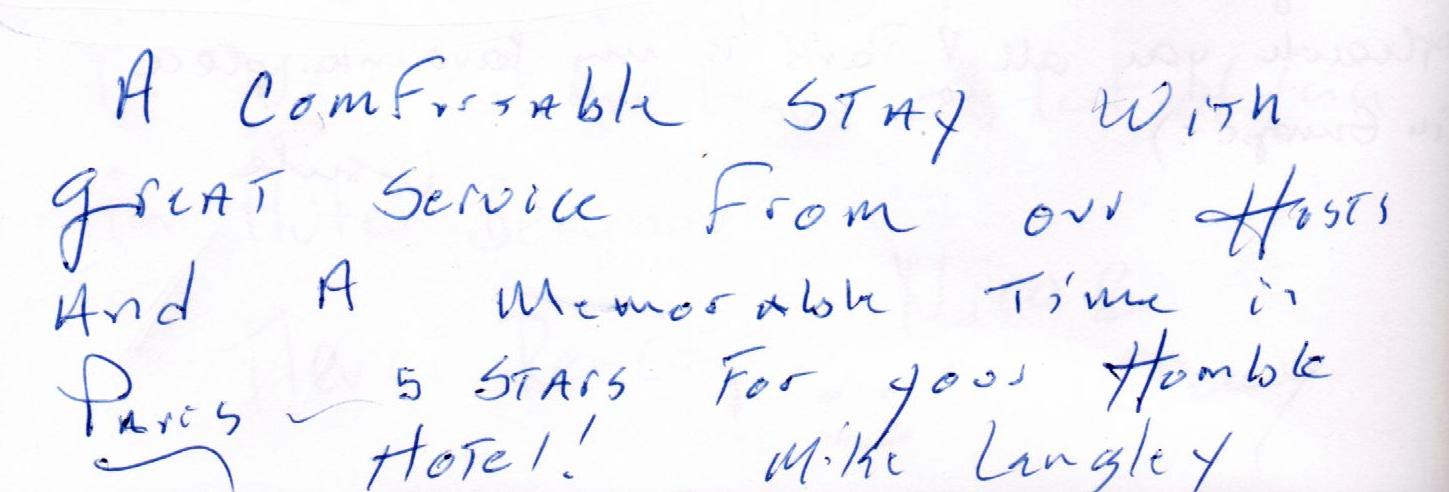 A Comfortable STAY With
great Service From our Hosts
And A Memorable Time in
Paris 5 STARS For your Homble
Hotel! Mike Langley